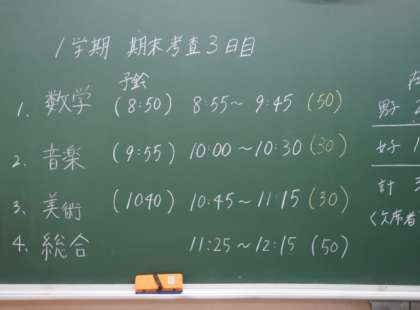 1学期 期末考査3日目
予鈴
1. 数学 (8:50) 8:55～9:45 (50)
2. 音楽 (9:55) 10:00～10:30 (30)
3. 美術 (1040) 10:45～11:15 (30)
4. 総合 11:25～12:15 (50)
在
男子 2
女子 1
計 3
〈欠席者